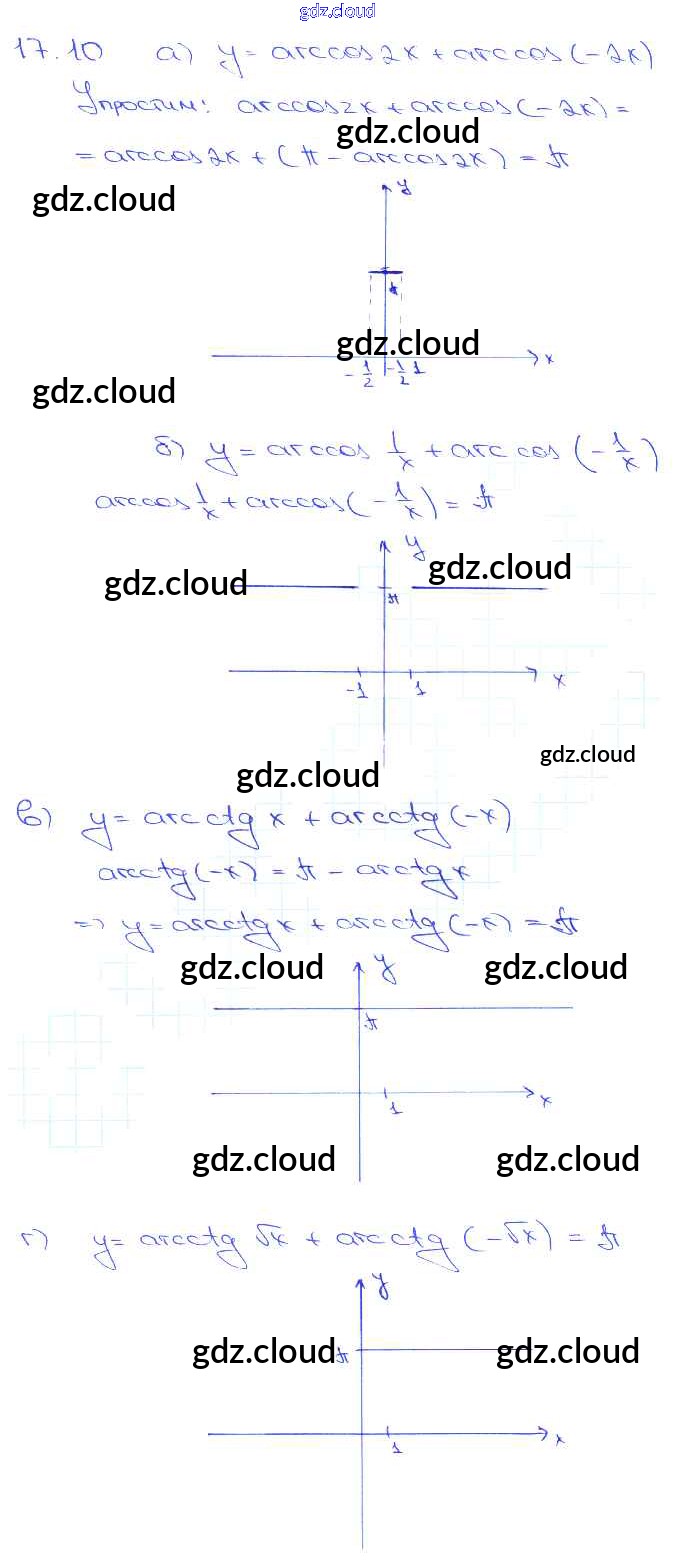 gdz.cloud
17.10 а) y = arccos 2x + arccos (-2x)
Упростим: arccos 2x + arccos (-2x) =
gdz.cloud
= arccos 2x + (π - arccos 2x) = π
gdz.cloud
y
π
gdz.cloud
x
-1/2 -1/2 1
gdz.cloud
б) y = arccos 1/x + arc cos (-1/x)
arccos 1/x + arccos (-1/x) = π
y
gdz.cloud gdz.cloud
π
-1 1 x
gdz.cloud
gdz.cloud
в) y = arcctg x + arcctg (-x)
arcctg (-x) = π - arctg x
=> y = arcctg x + arcctg (-x) = π
gdz.cloud y gdz.cloud
π
1 x
gdz.cloud gdz.cloud
г) y = arcctg √x + arcctg (-√x) = π
y
gdz.cloud π gdz.cloud
1 x